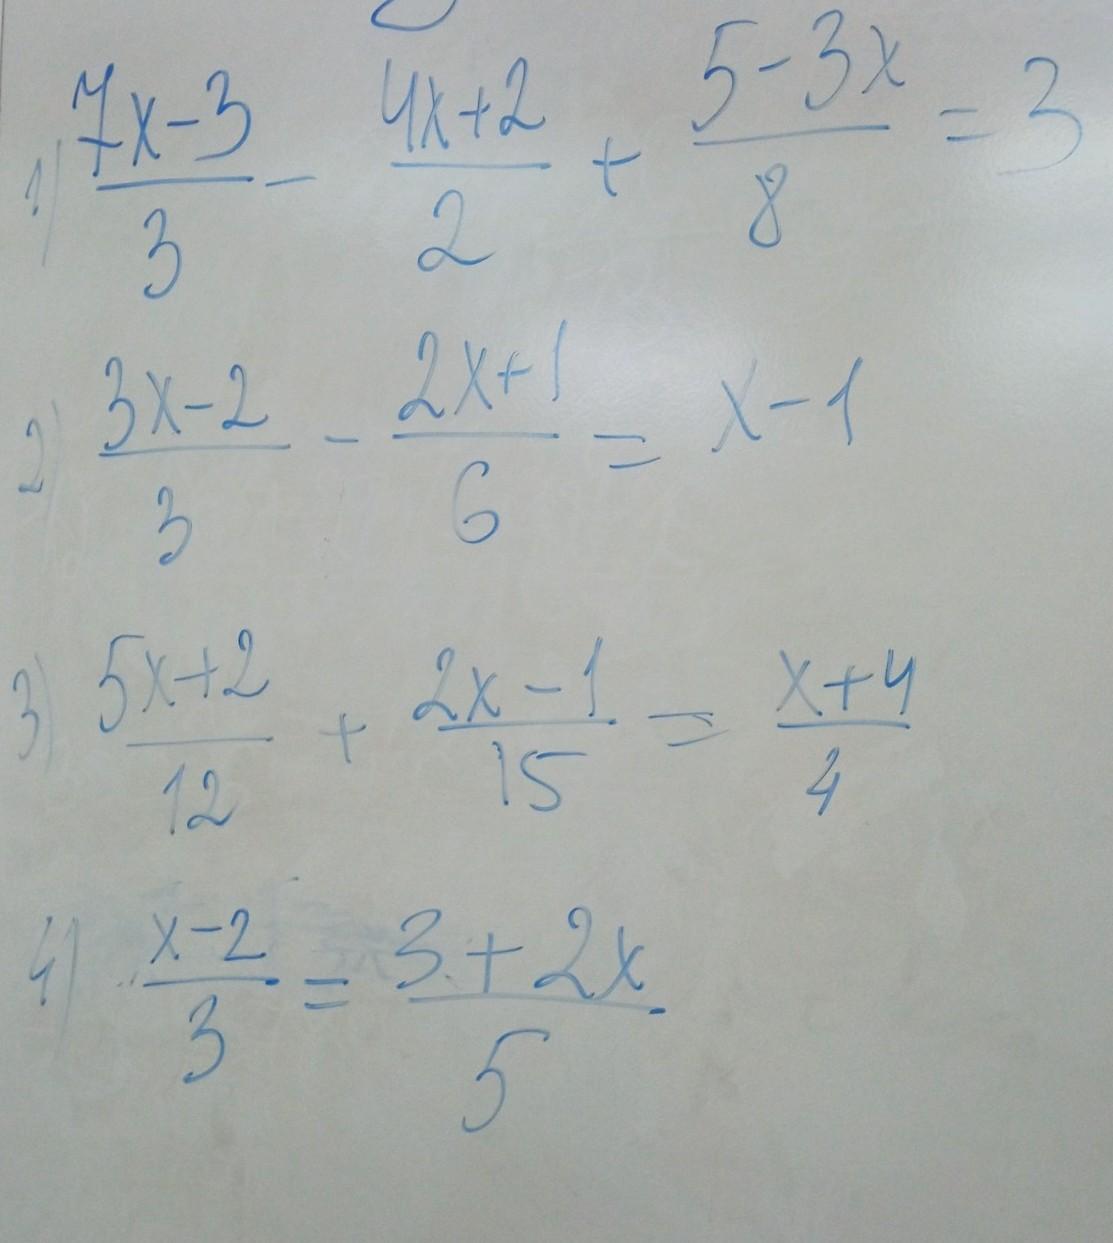 1) (7x-3)/3 - (4x+2)/2 + (5-3x)/8 = 3
2) (3x-2)/3 - (2x+1)/6 = x-1
3) (5x+2)/12 + (2x-1)/15 = (x+4)/4
4) (x-2)/3 = (3+2x)/5